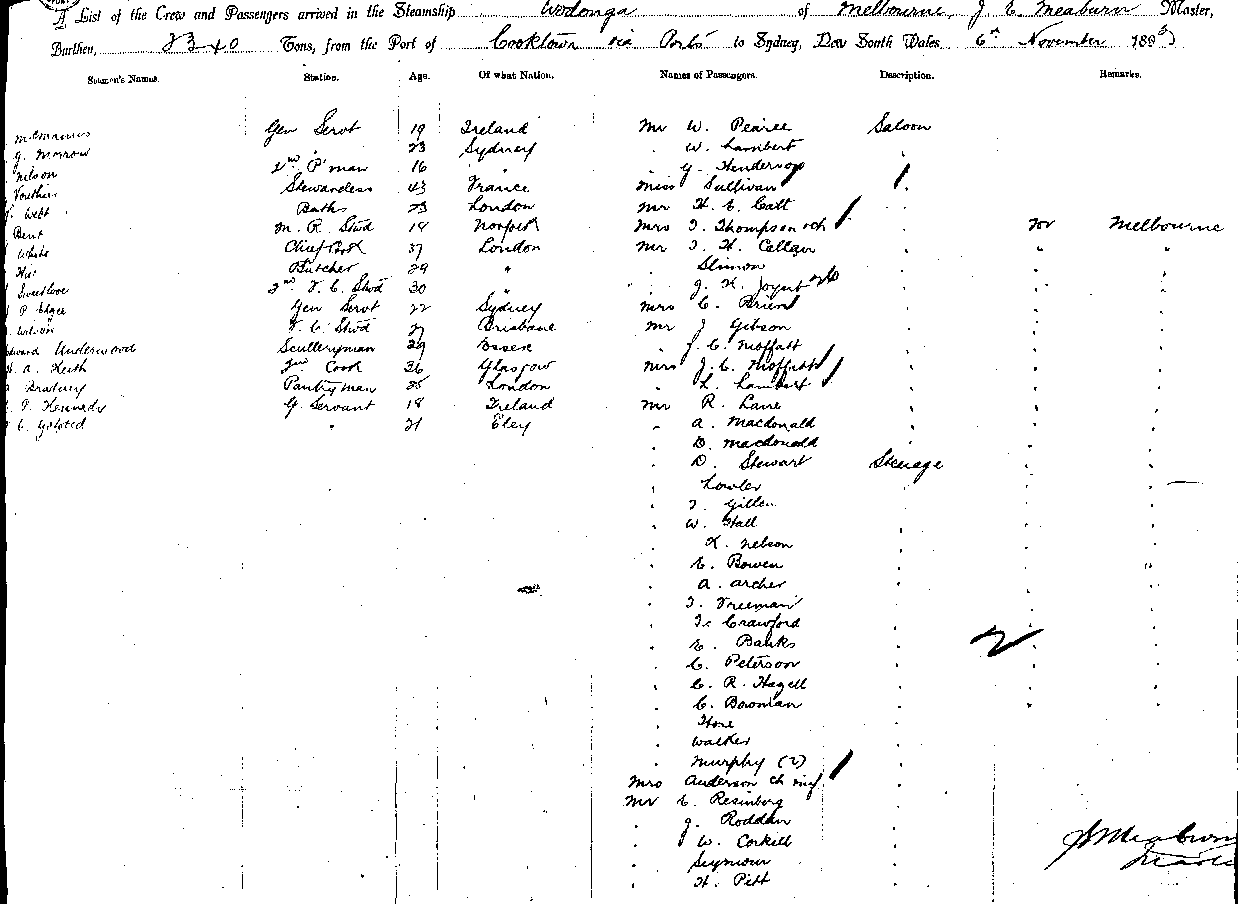 A List of the Crew and Passengers arrived in the Steamship Wodonga of Melbourne, J. C. Meaburn Master,
Burthen, 2340 Tons, from the Port of Cooktown via Ports to Sydney, New South Wales 6th November 189
Seamen's Names. Station. Age. Of what Nation. Names of Passengers. Description. Remarks.
McManus Gen Servt 19 Ireland Mr W. Pearce Saloon
G. Morrow " 23 Sydney " W. Lambert "
Nilson P'man 16 " " G. Henderson "
Stewardess 43 France Miss Sullivan "
Webb Baths 23 London Mr H. C. Catt "
Bent M. R. Stwd 19 Norfolk Mrs T. Thompson & ch " For Melbourne
White Chief Cook 37 London Mr T. H. " " "
Butcher 29 " " Slimon " " "
Sweetlove 2nd F. C. Stwd 30 " " J. H. " " "
P Edgee Gen Servt 22 Sydney Mrs C. Brien " " "
Wilson F. C. Stwd 27 Brisbane Mr J Gibson " " "
Edward Underwood Sculleryman 29 Essex " J. C. Moffatt " " "
H. A. Keith Cook 36 Glasgow Mrs J. C. Moffatt " " "
Bradney Pantryman 25 London " L. Lambert " " "
P. Kennedy G. Servant 18 Ireland Mr R. Lane " " "
" 21 Eley " A. Macdonald " " "
" D. Macdonald " "
" D. Stewart Steerage " "
" Lowler " "
" T. Gillen " " "
" W. Hall " " "
" K. Nelson " " "
" E. Bowen " " "
" A. Archer " " "
" T. Freeman " " "
" Crawford " " "
" E. Banks " " "
" C. Peterson " " "
" C. R. Hagell " " "
" C. Bowman " " "
" Hore "
" Walker "
" Murphy (2) "
Mrs Anderson ch inf "
Mr C. Resinberg "
" J. Rodden "
" W. Corkell "
" Seymour "
" H. Pitt "
J C Meaburn